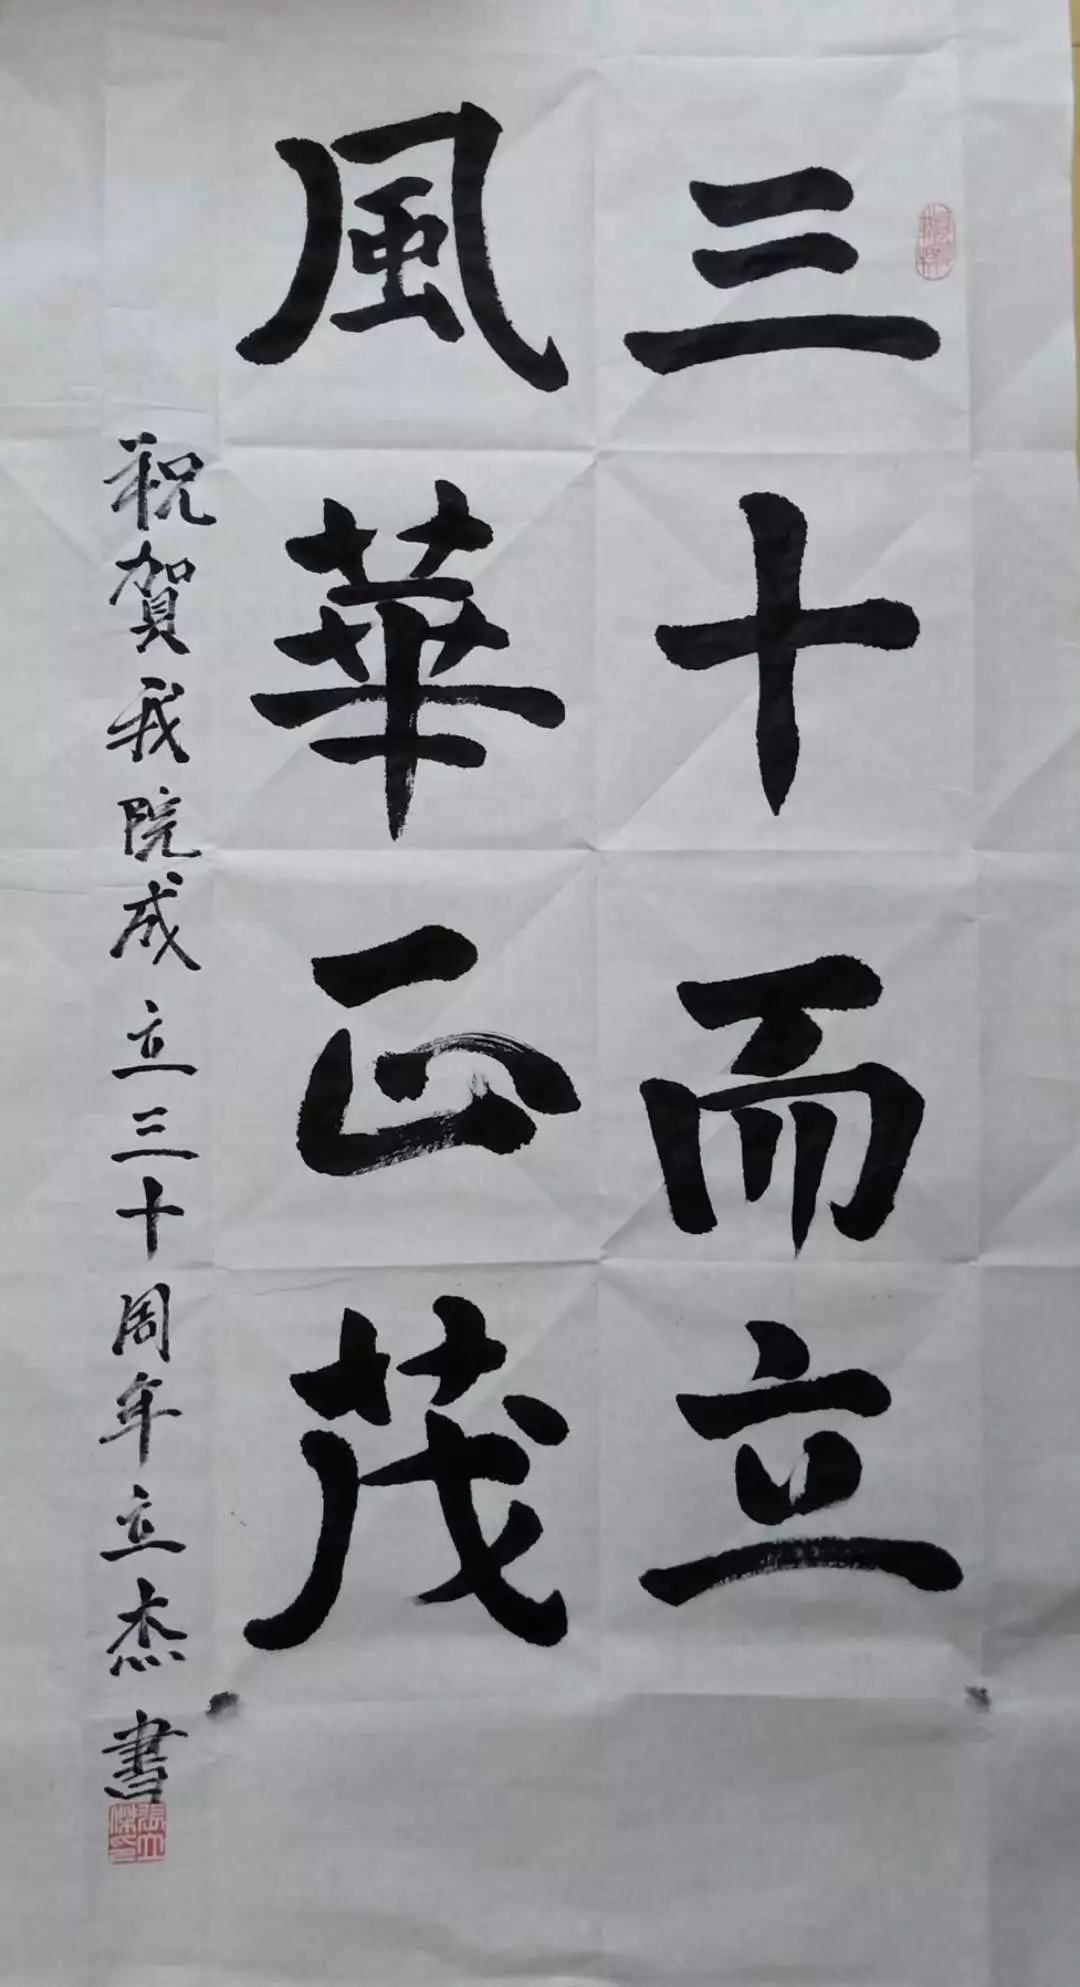 三十而立
風華正茂
祝賀我院成立三十周年立杰書
張立傑印